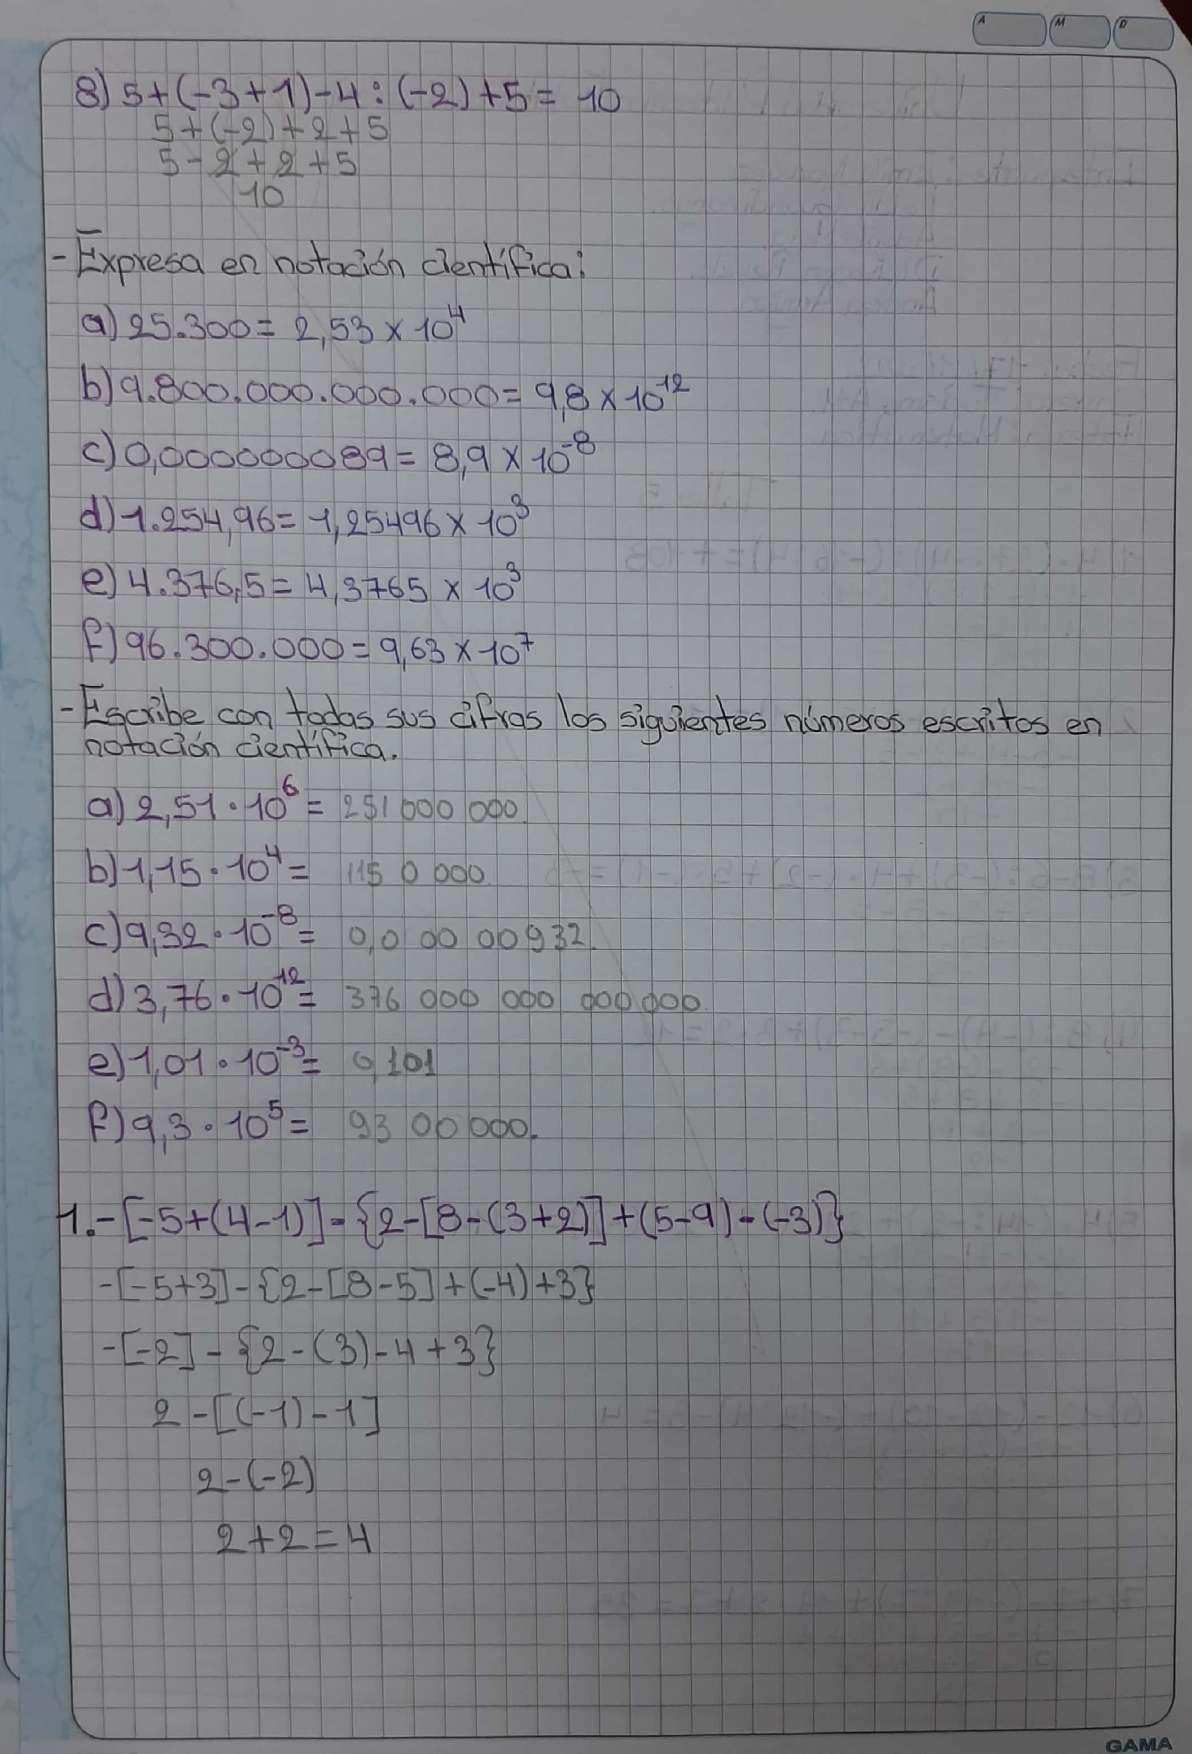 A M D
8) 5+(-3+1)-4:(-2)+5= 10
5+(-2)+2+5
5-2+2+5
10
-Expresa en notación científica:
a) 25.300= 2,53 x 10⁴
b) 9.800.000.000.000= 9,8 x 10⁻¹²
c) 0,000000089= 8,9 x 10⁻⁸
d) 1.254,96= 1,25496 x 10³
e) 4.376,5= 4,3765 x 10³
f) 96.300.000= 9,63 x 10⁷
-Escribe con todas sus cifras los siguientes números escritos en
notación científica.
a) 2,51·10⁶= 251 000 000
b) 1,15·10⁴= 115 0 000
c) 9,32·10⁻⁸= 0,0 00 00 932.
d) 3,76·10¹²= 376 000 000 000 000
e) 1,01·10⁻³= 0,101
f) 9,3·10⁵= 93 00 000.
1.-[-5+(4-1)]-{2-[8-(3+2)]+(5-9)-(-3)}
-[-5+3]-{2-[8-5]+(-4)+3}
-[-2]-{2-(3)-4+3}
2-[(-1)-1]
2-(-2)
2+2=4
GAMA